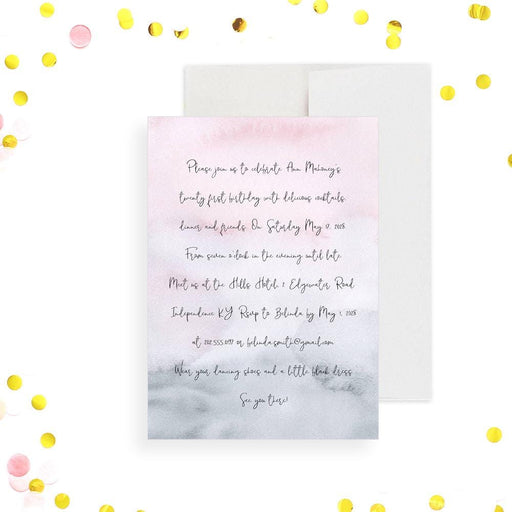 Please join us to celebrate Ann Mahoney's
twenty first birthday with delicious cocktails,
dinner and friends. On Saturday May 17, 2025
From seven o'clock in the evening until late.
Meet us at the Hills Hotel, 2 Edgewater Road
Independence KY. Rsvp to Belinda by May 1, 2025
at 202.555.0177 or belinda.smith@gmail.com
Wear your dancing shoes and a little black dress.
See you there!